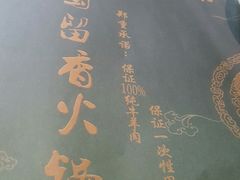 留香火锅
郑重承诺:保证100%
纯牛羊肉
保证一次性